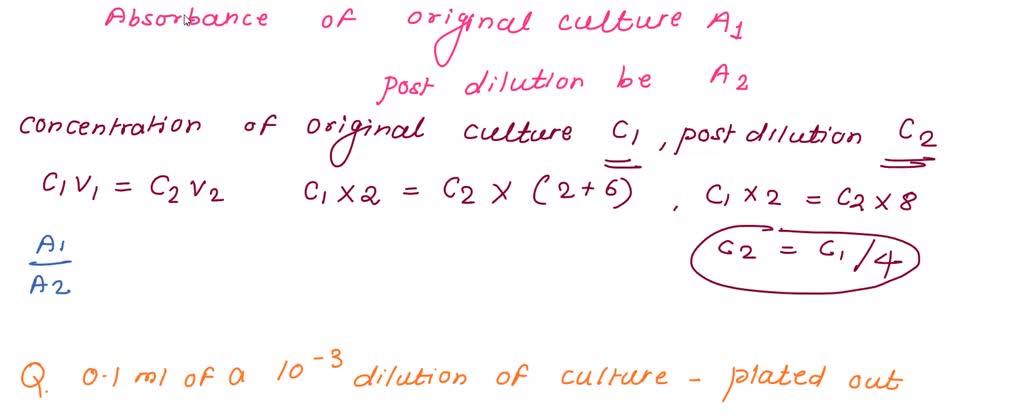 Absorbance of original culture A1
post dilution be A2
concentration of original culture C1, post dilution C2
C1V1 = C2V2 C1 x 2 = C2 x (2+6), C1 x 2 = C2 x 8
A1
A2
C2 = C1/4
Q. 0.1 ml of a 10^-3 dilution of culture - plated out